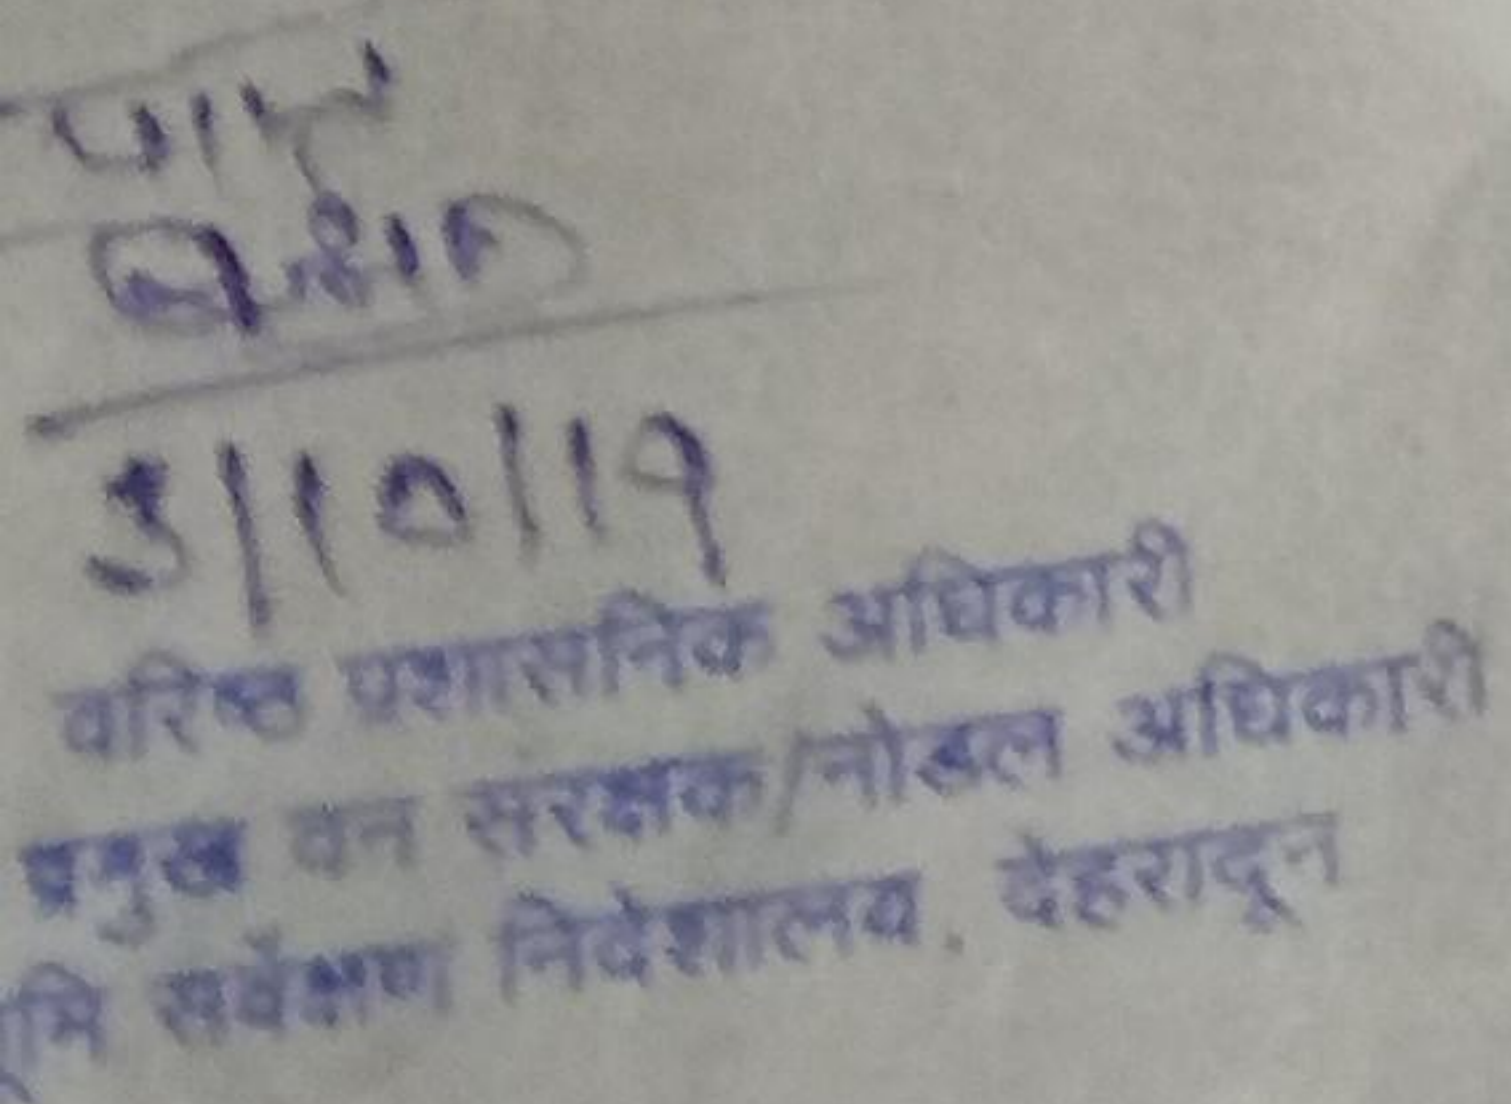 3/10/19
वरिष्ठ प्रशासनिक अधिकारी
प्रमुख वन संरक्षक/नोडल अधिकारी
सर्वेक्षण निदेशालय, देहरादून